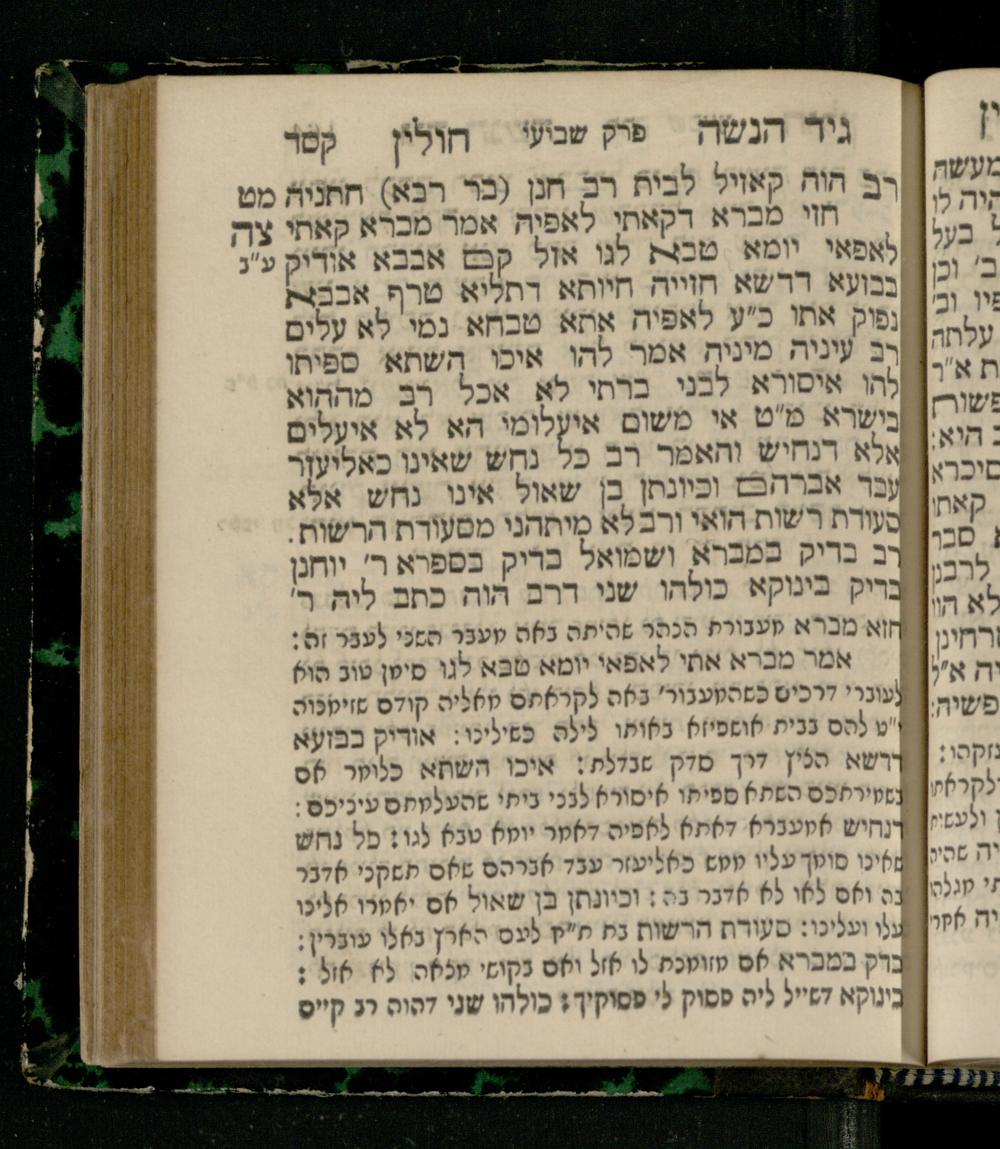 גיד הנשה פרק שביעי חולין קסד
רב הוה קאזיל לבית רב חנן (בר רבא) חתניה מט
חזי מברא דקאתי לאפיה אמר מברא קאתי צה
לאפאי יומא טבא לגו אזל קם אבבא אודיק ע״ב
בבועא דדשא חזייה חיותא דתליא טרף אבבא
נפוק אתו כ״ע לאפיה אתא טבחא נמי לא עלים
רב עיניה מיניה אמר להו איכו השתא ספיתו
להו איסורא לבני ברתי לא אכל רב מההוא
בישרא מ״ט אי משום איעלומי הא לא איעלים
אלא דנחיש והאמר רב כל נחש שאינו כאליעזר
עבד אברהם וכיונתן בן שאול אינו נחש אלא
סעודת רשות הואי ורב לא מיתהני מסעודת הרשות.
רב בדיק במברא ושמואל בדיק בספרא ר׳ יוחנן
בדיק בינוקא כולהו שני דרב הוה כתב ליה ר׳
חזא מברא מעבורת הנהר שהיתה באה מעבר השני לעבר זה:
אמר מברא אתי לאפאי יומא טבא לגו סימן טוב הוא
לעוברי דרכים כשהמעבור׳ באה לקראתם מאליה קודם שזימנוה
י״ט להם בבית אושפיזא באותו לילה כשילינו: אודיק בבזעא
דדשא הליץ דרך סדק שבדלת: איכו השתא כלומר אם
בשמירתכם השתא ספיתו איסורא לבני ביתי שהעלמתם עיניכם:
דנחיש אמעברא דאתא לאפיה דאמר יומא טבא לגו: כל נחש
שאינו סומך עליו ממש כאליעזר עבד אברהם שאם תשקני אדבר
בה ואם לאו לא אדבר בה: וכיונתן בן שאול אם יאמרו אלינו
עלו ועלינו: סעודת הרשות בת ת״ח לעם הארץ באלו עוברין:
בדק במברא אם מזומנת לו אזל ואם בקושי מלאה לא אזל:
בינוקא דשייל ליה פסוק לי פסוקיך: כולהו שני דהוה רב קיים